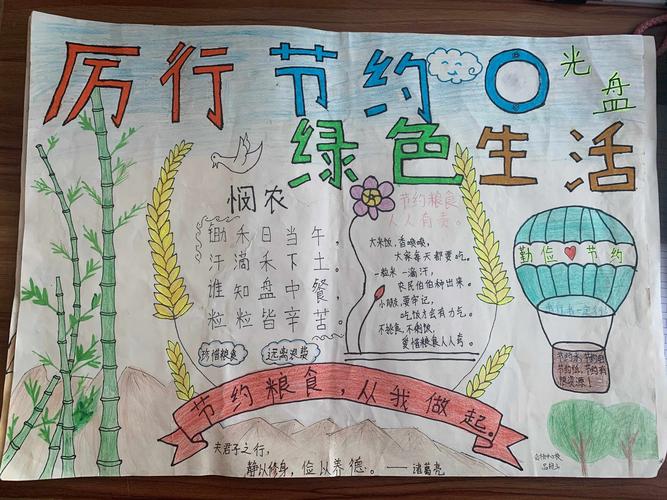 厉行节约
光盘
绿色生活
悯农
锄禾日当午，
汗滴禾下土。
谁知盘中餐
粒粒皆辛苦。
珍惜粮食
远离浪费
节约粮食
人人有责。
大米饭，香喷喷，
大家每天都要吃。
一粒米一滴汗，
农民伯伯种出来。
小朋友要牢记，
吃饭才会有力气。
不挑食，不剩饭，
爱惜粮食人人夸。
勤俭节约
节约水，节约电
节约纸，节约有
限资源！
节约粮食，从我做起。
夫君子之行，
静以修身，俭以养德。——诸葛亮